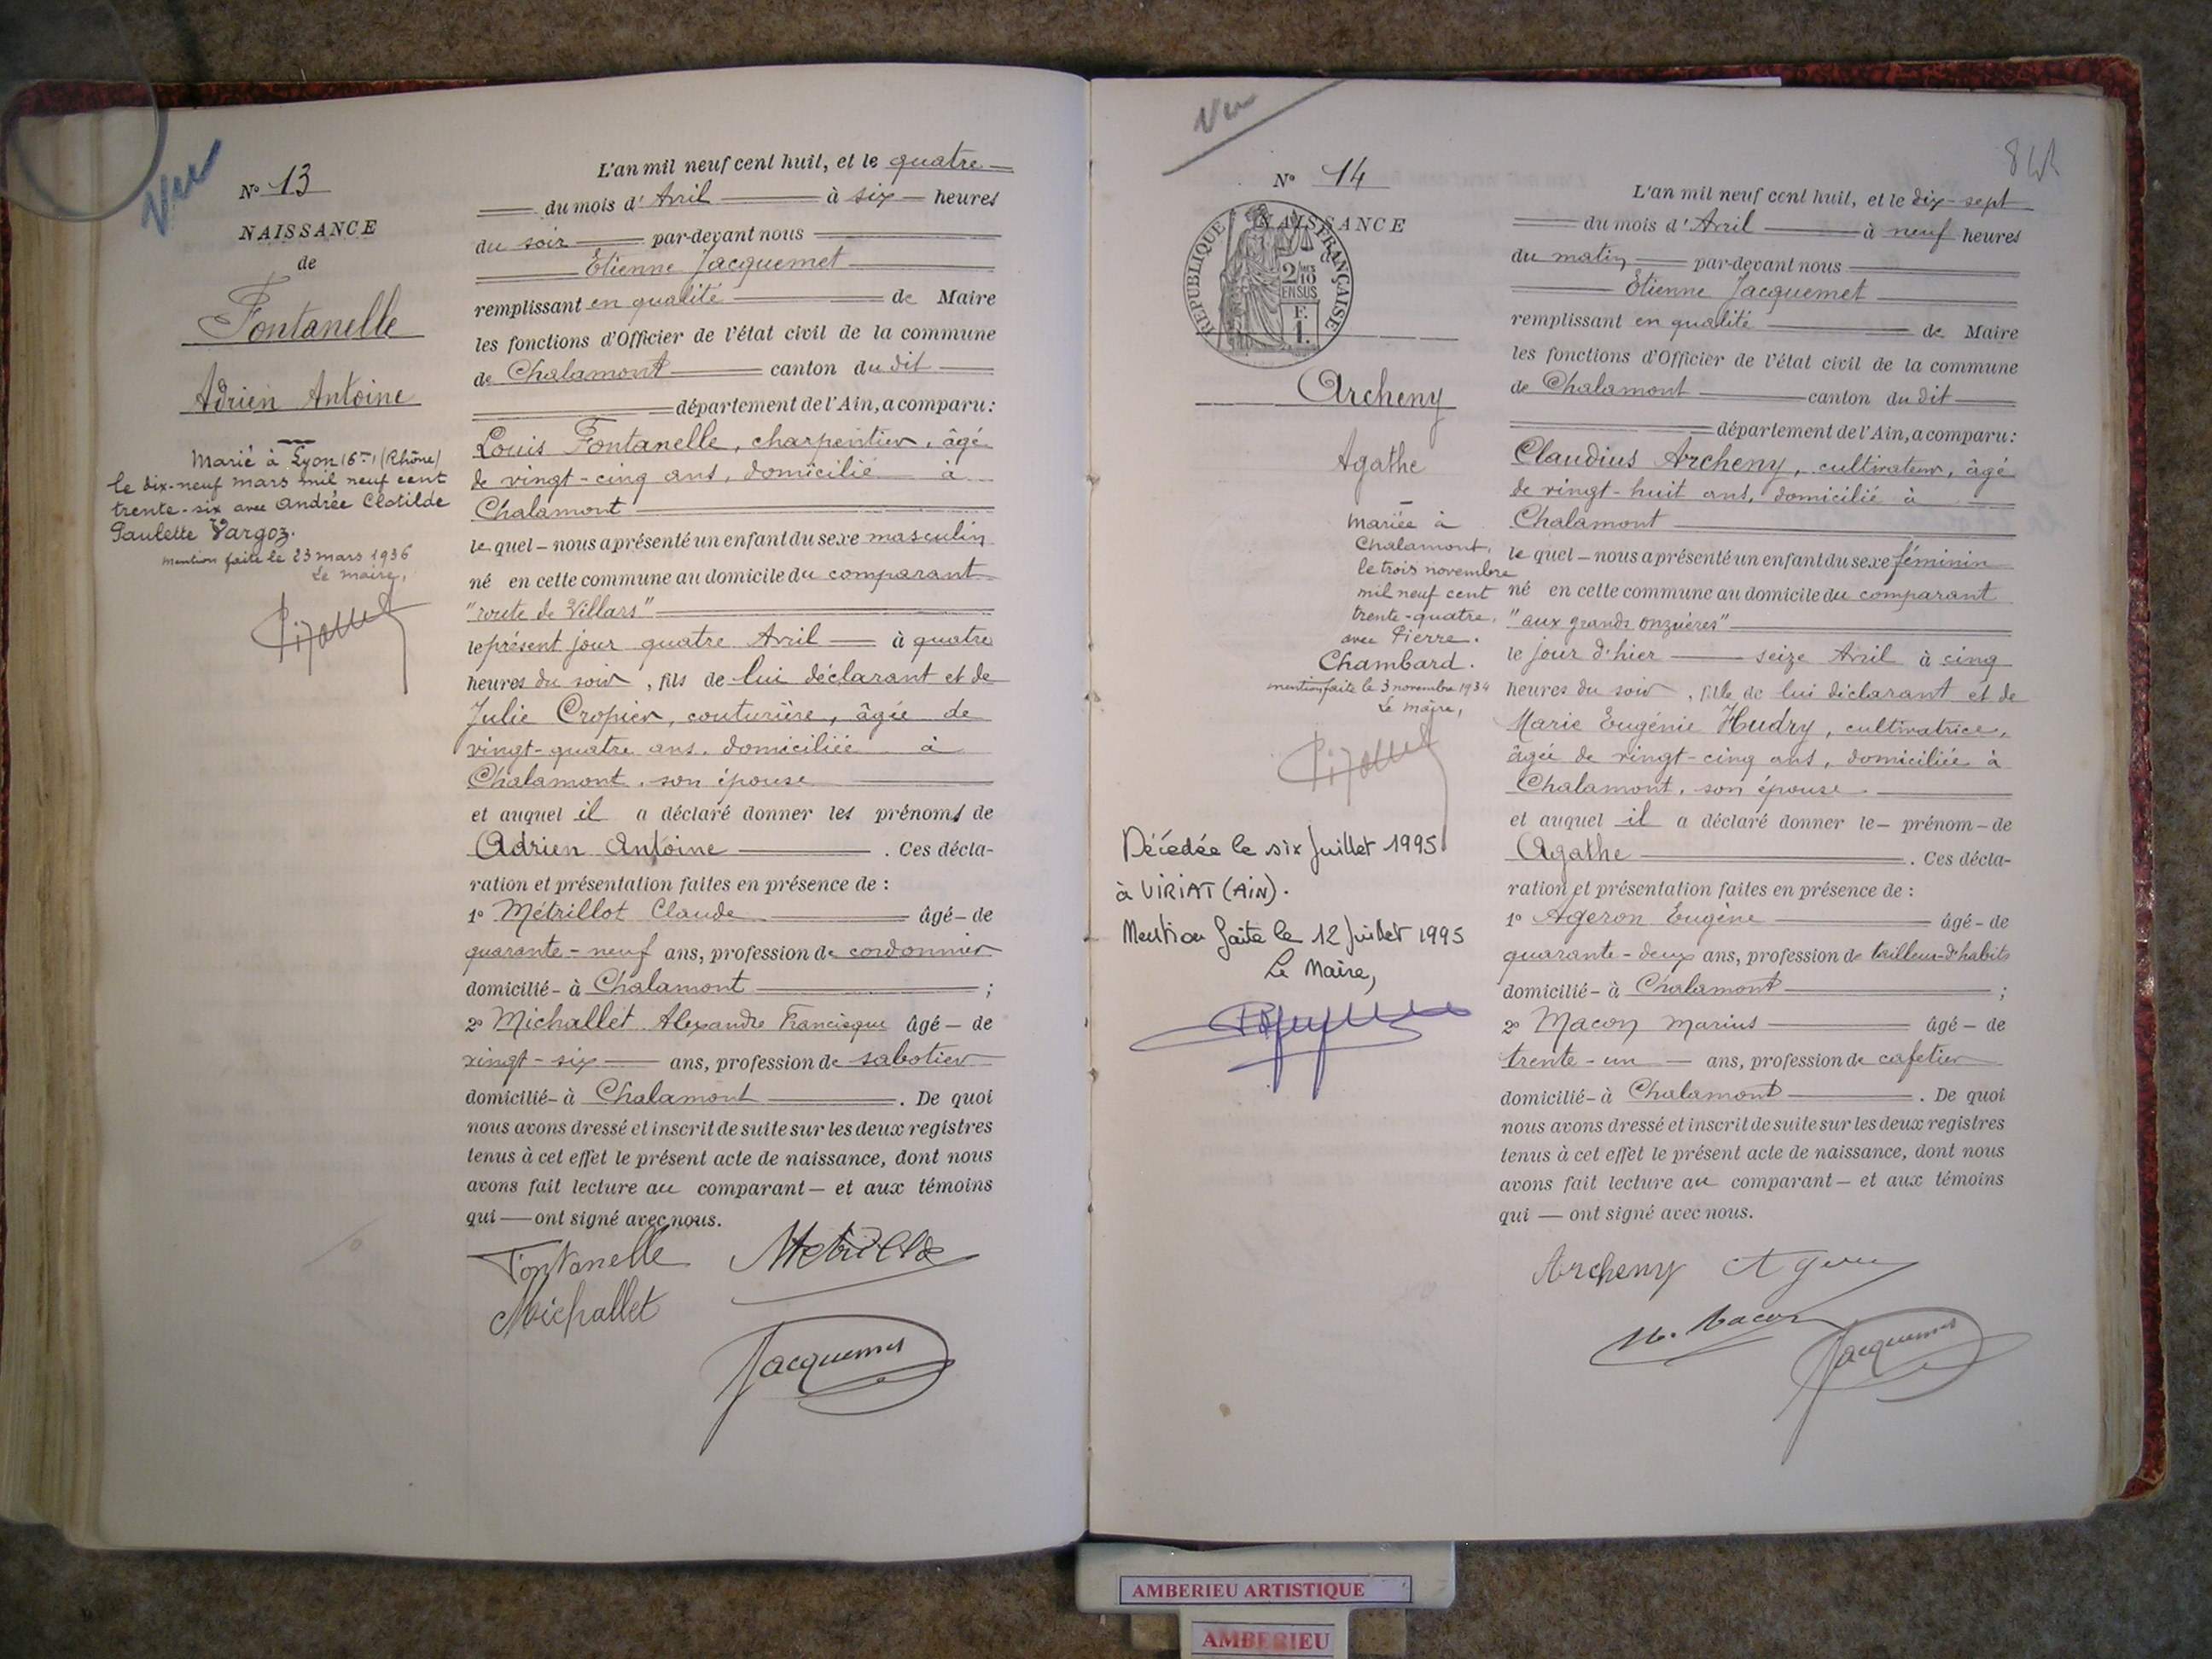 Vu
Nº 13
NAISSANCE
de
Fontanelle
Adrien Antoine
Marié à Lyon (6me) (Rhône)
le dix-neuf mars mil neuf cent
trente-six avec Andrée Clotilde
Paulette Vargoz.
mention faite le 23 mars 1936
Le maire,
L'an mil neuf cent huit, et le quatre
du mois d'Avril à six heures
du soir par-devant nous
Etienne Jacquemet
remplissant en qualité de Maire
les fonctions d'Officier de l'état civil de la commune
de Chalamont canton du dit
département de l'Ain, a comparu :
Louis Fontanelle, charpentier, âgé
de vingt-cinq ans, domicilié à
Chalamont
lequel nous a présenté un enfant du sexe masculin
né en cette commune au domicile du comparant
"route de Villars"
le présent jour quatre Avril à quatre
heures du soir, fils de lui déclarant et de
Julie Cropier, couturière, âgée de
vingt-quatre ans, domiciliée à
Chalamont, son épouse
et auquel il a déclaré donner les prénoms de
Adrien Antoine. Ces décla-
ration et présentation faites en présence de :
1º Métrillot Claude âgé de
quarante-neuf ans, profession de cordonnier
domicilié à Chalamont ;
2º Michallet Alexandre Francisque âgé de
vingt-six ans, profession de sabotier
domicilié à Chalamont. De quoi
nous avons dressé et inscrit de suite sur les deux registres
tenus à cet effet le présent acte de naissance, dont nous
avons fait lecture au comparant et aux témoins
qui ont signé avec nous.
Fontanelle
Michallet
Jacquemet
Vu
Nº 14
NAISSANCE
REPUBLIQUE FRANÇAISE
2/10
EN SUS
F.
1.
Archeny
Agathe
mariée à
Chalamont,
le trois novembre
mil neuf cent
trente-quatre,
avec Pierre.
Chambard.
mention faite le 3 novembre 1934
Le maire,
Décédée le six Juillet 1995
à VIRIAT (AIN).
Mention faite le 12 Juillet 1995
Le Maire,
L'an mil neuf cent huit, et le dix-sept
du mois d'Avril à neuf heures
du matin par-devant nous
Etienne Jacquemet
remplissant en qualité de Maire
les fonctions d'Officier de l'état civil de la commune
de Chalamont canton du dit
département de l'Ain, a comparu :
Claudius Archeny, cultivateur, âgé
de vingt-huit ans, domicilié à
Chalamont
lequel nous a présenté un enfant du sexe féminin
né en cette commune au domicile du comparant
"aux grands onzières"
le jour d'hier seize Avril à cinq
heures du soir, fille de lui déclarant et de
Marie Eugénie Hudry, cultivatrice,
âgée de vingt-cinq ans, domiciliée à
Chalamont, son épouse.
et auquel il a déclaré donner le prénom de
Agathe. Ces décla-
ration et présentation faites en présence de :
1º Ageron Eugène âgé de
quarante-deux ans, profession de tailleur-d'habits
domicilié à Chalamont ;
2º Macon Marius âgé de
trente-un ans, profession de cafetier
domicilié à Chalamont. De quoi
nous avons dressé et inscrit de suite sur les deux registres
tenus à cet effet le présent acte de naissance, dont nous
avons fait lecture au comparant et aux témoins
qui ont signé avec nous.
Archeny
M. Macon
Jacquemet
AMBERIEU ARTISTIQUE
AMBERIEU